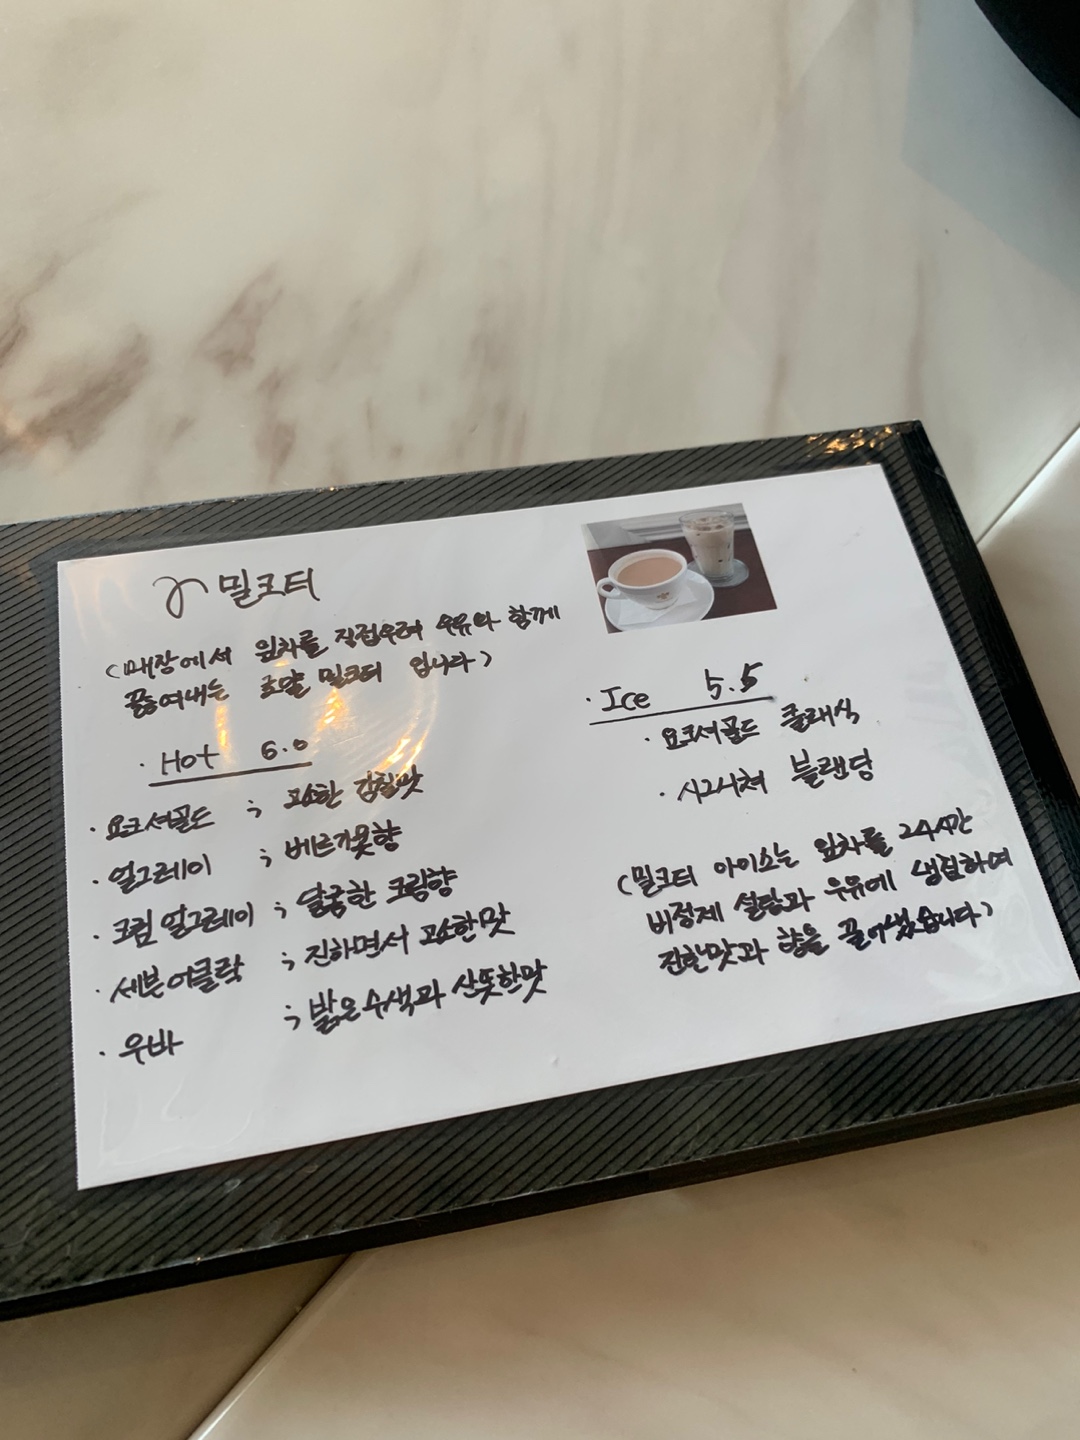 밀크티
(매장에서 잎차를 직접우려 우유와 함께
끓여내는 로얄 밀크티 입니다)
· Hot 6.0
· 요크셔골드 ; 고소한 감칠맛
· 얼그레이 ; 베르가못향
· 크림 얼그레이 ; 달콤한 크림향
· 세븐어클락 ; 진하면서 고소한맛
· 우바 ; 밝은수색과 산뜻한맛
· Ice 5.5
· 요크셔골드 클래식
· 시그니쳐 블랜딩
(밀크티 아이스는 잎차를 24시간
비정제 설탕과 우유에 냉침하여
진한맛과 향을 끌어냈습니다)